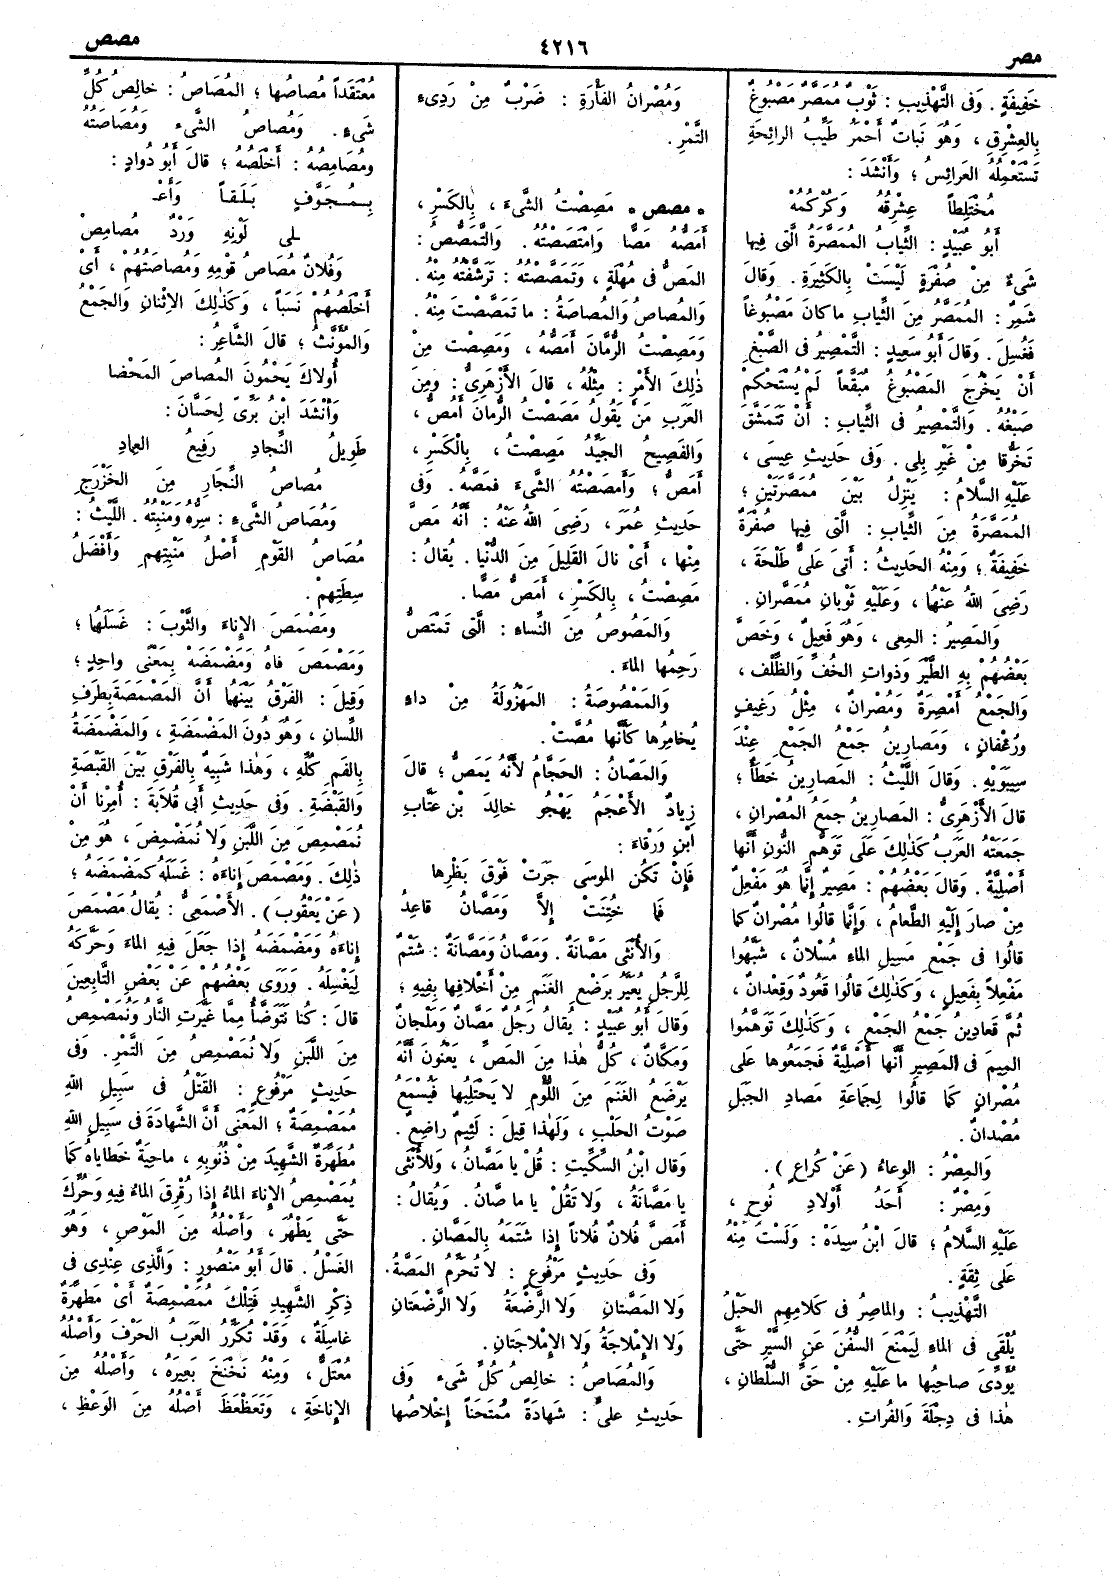 مصر
٤٢١٦
مصص
خَفِيفَةٍ . وَفِى التَّهْذِيبِ : ثَوْبٌ مُمَصَّرٌ مَصْبُوغٌ
بِالعِشْرِقِ ، وَهُوَ نَباتٌ أَحْمَرُ طَيِّبُ الرائِحَةِ
تَسْتَعْمِلُهُ العَرائِسُ ؛ وَأَنْشَدَ :
مُخْتَلِطاً عِشْرِقُهُ وَكُرْكُمُهْ
أَبُو عُبَيْدٍ : الثِّيابُ المُمَصَّرَةُ الَّتِى فِيها
شَىْءٌ مِنْ صُفْرَةٍ لَيْسَتْ بِالكَثِيرَةِ . وَقالَ
شَمِرٌ : المُمَصَّرُ مِنَ الثِّيابِ ما كانَ مَصْبُوغاً
فَغُسِلَ . وَقالَ أَبُو سَعِيدٍ : التَّمْصِيرُ فِى الصَّبْغِ
أَنْ يَخْرُجَ المَصْبُوغُ مُبَقَّعاً لَمْ يُسْتَحْكَمْ
صَبْغُهُ . وَالتَّمْصِيرُ فِى الثِّيابِ : أَنْ تَتَمَشَّقَ
تَخَرُّقا مِنْ غَيْرِ بِلًى . وَفِى حَدِيثِ عِيسَى ،
عَلَيْهِ السَّلامُ : يَنْزِلُ بَيْنَ مُمَصَّرَتَيْنِ ؛
المُمَصَّرَةُ مِنَ الثِّيابِ : الَّتِى فِيها صُفْرَةٌ
خَفِيفَةٌ ؛ وَمِنْهُ الحَدِيثُ : أَتَى عَلِىٌّ طَلْحَةَ ،
رَضِىَ اللهُ عَنْهُما ، وَعَلَيْهِ ثَوْبانِ مُمَصَّرانِ .
وَالمَصِيرُ : المِعَى ، وَهُوَ فَعِيلٌ ، وَخَصَّ
بَعْضُهُمْ بِهِ الطَّيْرَ وَذَواتِ الخُفِّ وَالظِّلْفِ ،
وَالجَمْعُ أَمْصِرَةٌ وَمُصْرانٌ ، مِثْلُ رَغِيفٍ
وَرُغْفانٍ ، وَمَصارِينُ جَمْعُ الجَمْعِ عِنْدَ
سِيبَوَيْهِ . وَقالَ اللَّيْثُ : المَصارِينُ خَطَأٌ ؛
قالَ الأَزْهَرِىُّ : المَصارِينُ جَمْعُ المُصْرانِ ،
جَمَعَتْهُ العَرَبُ كَذٰلِكَ عَلَى تَوَهُّمِ النُّونِ أَنَّها
أَصْلِيَّةٌ . وَقالَ بَعْضُهُمْ : مَصِيرٌ إِنَّما هُوَ مَفْعِلٌ
مِنْ صارَ إِلَيْهِ الطَّعامُ ، وَإِنَّما قالُوا مُصْرانٌ كَما
قالُوا فِى جَمْعِ مَسِيلِ الماءِ مُسْلانٌ ، شَبَّهُوا
مَفْعِلاً بِفَعِيلٍ ، وَكَذٰلِكَ قالُوا قَعُودٌ وَقِعْدانٌ ،
ثُمَّ قَعادِينُ جَمْعُ الجَمْعِ ، وَكَذٰلِكَ تَوَهَّمُوا
المِيمَ فِى المَصِيرِ أَنَّها أَصْلِيَّةٌ فَجَمَعُوها عَلَى
مُصْرانٍ كَما قالُوا لِجَماعَةِ مَصادِ الجَبَلِ
مُصْدانٌ .
وَالمِصْرُ : الوِعاءُ ( عَنْ كُراعٍ ) .
وَمِصْرٌ : أَحَدُ أَوْلادِ نُوحٍ ،
عَلَيْهِ السَّلامُ ؛ قالَ ابْنُ سِيدَهْ : وَلَسْتُ مِنْهُ
عَلَى ثِقَةٍ .
التَّهْذِيبُ : وَالماصِرُ فِى كَلامِهِمِ الحَبْلُ
يُلْقَى فِى الماءِ لِيَمْنَعَ السُّفُنَ عَنِ السَّيْرِ حَتَّى
يُؤَدِّىَ صاحِبُها ما عَلَيْهِ مِنْ حَقِّ السُّلْطانِ ،
هٰذا فِى دِجْلَةَ وَالفُراتِ .
وَمُصْرانُ الفَأْرَةِ : ضَرْبٌ مِنْ رَدِىءِ
التَّمْرِ .
• مصص • مَصِصْتُ الشَّىْءَ ، بِالكَسْرِ ،
أَمَصُّهُ مَصًّا وَامْتَصَصْتُهُ . وَالتَّمَصُّصُ :
المَصُّ فِى مُهْلَةٍ ، وَتَمَصَّصْتُهُ : تَرَشَّفْتُهُ مِنْهُ .
وَالمُصاصُ وَالمُصاصَةُ : ما تَمَصَّصْتَ مِنْهُ .
وَمَصِصْتُ الرُّمَّانَ أَمَصُّهُ ، وَمَصِصْتُ مِنْ
ذٰلِكَ الأَمْرِ : مِثْلُهُ ، قالَ الأَزْهَرِىُّ : وَمِنَ
العَرَبِ مَنْ يَقُولُ مَصَصْتُ الرُّمَّانَ أَمُصُّ ،
وَالفَصِيحُ الجَيِّدُ مَصِصْتُ ، بِالْكَسْرِ ،
أَمَصُّ ؛ وَأَمْصَصْتُهُ الشَّىْءَ فَمَصَّهُ . وَفِى
حَدِيثِ عُمَرَ ، رَضِىَ اللهُ عَنْهُ : أَنَّهُ مَصَّ
مِنْها ، أَىْ نالَ القَلِيلَ مِنَ الدُّنْيا . يُقالُ :
مَصِصْتُ ، بِالكَسْرِ ، أَمَصُّ مَصًّا .
وَالمَصُوصُ مِنَ النِّساءِ : الَّتِى تَمْتَصُّ
رَحِمُها الماءَ .
وَالمَمْصُوصَةُ : المَهْزُولَةُ مِنْ داءٍ
يُخامِرُها كَأَنَّها مُصَّتْ .
وَالمَصَّانُ : الحَجَّامُ لأَنَّهُ يَمَصُّ ؛ قالَ
زِيادٌ الأَعْجَمُ يَهْجُو خالِدَ بْنَ عَتَّابِ
ابْنِ وَرْقاءَ :
فَإِنْ تَكُنِ المُوسَى جَرَتْ فَوْقَ بَظْرِها
فَما خُتِنَتْ إِلاَّ وَمَصَّانُ قاعِدُ
وَالأُنْثَى مَصَّانَةٌ . وَمَصَّانُ وَمَصَّانَةُ : شَتْمٌ
لِلرَّجُلِ يُعَيَّرُ بِرَضْعِ الغَنَمِ مِنْ أَخْلافِها بِفِيهِ ؛
وَقالَ أَبُو عُبَيْدٍ : يُقالُ رَجُلٌ مَصَّانٌ وَمَلْجانٌ
وَمَكَّانٌ ، كُلُّ هٰذا مِنَ المَصِّ ، يَعْنُونَ أَنَّهُ
يَرْضَعُ الغَنَمَ مِنَ اللُّؤْمِ لا يَحْتَلِبُها فَيُسْمَعُ
صَوْتُ الحَلْبِ ، وَلِهٰذا قِيلَ : لَئِيمٌ راضِعٌ .
وَقالَ ابْنُ السِّكِّيتِ : قُلْ يا مَصَّانُ ، وَلِلأُنْثَى
يا مَصَّانَةُ ، وَلا تَقُلْ يا ما صَّانُ . وَيُقالُ :
أَمَصَّ فُلانٌ فُلاناً إِذا شَتَمَهُ بِالمَصَّانِ .
وَفِى حَدِيثٍ مَرْفُوعٍ : لا تُحَرِّمُ المَصَّةُ
وَلا المَصَّتانِ وَلا الرَّضْعَةُ وَلا الرَّضْعَتانِ
وَلا الإِمْلاجَةُ وَلا الإِمْلاجَتانِ .
وَالمُصاصُ : خالِصُ كُلِّ شَىْءٍ وَفِى
حَدِيثِ عَلِىٍّ : شَهادَةً مُمْتَحَناً إِخْلاصُها
مُعْتَقَداً مُصاصُها ؛ المُصَاصُ : خالِصُ كُلِّ
شَىْءٍ . وَمُصاصُ الشَّىْءِ وَمُصاصَتُهُ
ومُصَامِصُهُ : أَخْلَصُهُ ؛ قالَ أَبُو دُوادٍ :
بِمُجَوَّفٍ بَلَقاً وَأَعْـ
ـلَى لَوْنِهِ وَرْدٌ مُصامِصْ
وَفُلانٌ مُصَاصُ قَوْمِهِ وَمُصاصَتُهُمْ ، أَىْ
أَخْلَصُهُمْ نَسَباً ، وَكَذٰلِكَ الاِثْنانِ وَالجَمْعُ
وَالمُؤَنَّثُ ؛ قالَ الشَّاعِرُ :
أُولاكَ يَحْمُونَ المُصاصَ المَحْضا
وَأَنْشَدَ ابْنُ بَرِّىّ لِحَسَّانَ :
طَوِيلُ النِّجادِ رَفِيعُ العِمادِ
مُصاصُ النِّجَارِ مِنَ الخَزْرَجِ
وَمُصَاصُ الشَّىْءِ : سِرُّهُ وَمَنْبِتُهُ . اللَّيْثُ :
مُصَاصُ القَوْمِ أَصْلُ مَنْبِتِهِمِ وَأَفْضَلُ
سِطَتِهِمْ .
وَمَصْمَصَ الإِناءَ وَالثَّوْبَ : غَسَلَهُما ؛
وَمَصْمَصَ فاهُ وَمَضْمَضَهُ بِمَعْنًى واحِدٍ ؛
وَقِيلَ : الفَرْقُ بَيْنَهُما أَنَّ المَصْمَصَةَ بِطَرَفِ
اللِّسانِ ، وَهُوَ دُونَ المَضْمَضَةِ ، وَالمَضْمَضَةُ
بِالفَمِ كُلِّهِ ، وَهٰذا شَبِيهٌ بِالفَرْقِ بَيْنَ القَبْصَةِ
وَالقَبْضَةِ . وَفِى حَدِيثِ أَبِى قُلابَةَ : أُمِرْنا أَنْ
نُمَصْمِصَ مِنَ اللَّبَنِ وَلا نُمَضْمِضَ ، هُوَ مِنْ
ذٰلِكَ . وَمَصْمَصَ إِناءَهُ : غَسَلَهُ كَمَضْمَضَهُ ؛
( عَنْ يَعْقُوبَ ) . الأَصْمَعِىُّ : يُقالُ مَصْمَصَ
إِناءَهُ وَمَضْمَضَهُ إِذا جَعَلَ فِيهِ الماءَ وَحَرَّكَهُ
لِيَغْسِلَهُ . وَرَوَى بَعْضُهُمْ عَنْ بَعْضِ التَّابِعِينَ
قالَ : كُنَّا نَتَوَضَّأُ مِمَّا غَيَّرَتِ النَّارُ وَنُمَصْمِصُ
مِنَ اللَّبَنِ وَلا نُمَصْمِصُ مِنَ التَّمْرِ . وَفِى
حَدِيثٍ مَرْفُوعٍ : القَتْلُ فِى سَبِيلِ اللهِ
مُمَصْمِصَةٌ ؛ المَعْنَى أَنَّ الشَّهادَةَ فِى سَبِيلِ اللهِ
مُطَهِّرَةٌ الشَّهِيدَ مِنْ ذُنُوبِهِ ، ماحِيَةٌ خَطاياهُ كَما
يُمَصْمِصُ الإِناءَ الماءُ إِذا رُقْرِقَ الماءُ فِيهِ وَحُرِّكَ
حَتَّى يَطْهُرَ ، وَأَصْلُهُ مِنَ المَوْصِ ، وَهُوَ
الغَسْلُ . قالَ أَبُو مَنْصُورٍ : وَالَّذِى عِنْدِى فِى
ذِكْرِ الشَّهِيدِ فَتِلْكَ مُمَصْمِصَةٌ أَىْ مُطَهِّرَةٌ
غاسِلَةٌ ، وَقَدْ تُكَرِّرُ العَرَبُ الحَرْفَ وَأَصْلُهُ
مُعْتَلٌّ ، وَمِنْهُ نَخْنَخَ بَعِيرَهُ ، وَأَصْلُهُ مِنَ
الإِناخَةِ ، وَتَعَظْعَظَ أَصْلُهُ مِنَ الوَعْظِ ،